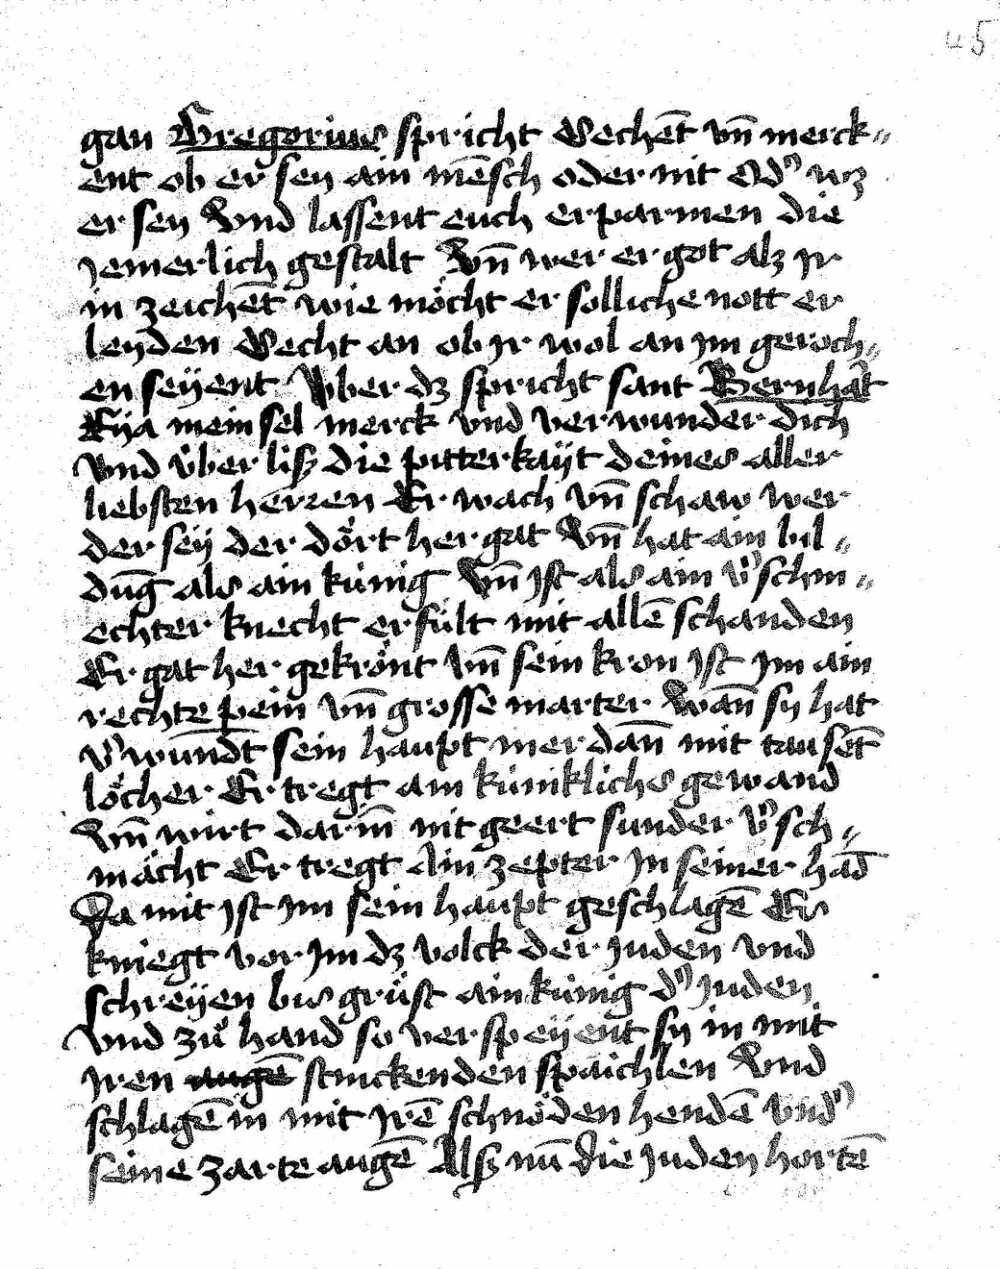 45
gan Gregorius spricht Sechēt vn̄ merck„
ent ob er sey ain mēsch oder nit Odʾ wz
er sey Vnd lassent euch erparmen die
jemerlich gestalt Vn̄ wer er got alz jr
in zeichēt wie möcht er solliche nott er
leyden Secht an ob jr wol an jm geroch„
en seÿent Vber dz spricht sant Bernhāt
Eÿa mein sel merck vnd verwunder dich
Vnd über liß die pitterkaÿt deines aller
liebsten herren Er wach vn̄ schaw wer
der seÿ der dört her gat Vn̄ hat ain bil„
dūg als ain künig Vn̄ jst als ain vʾschm„
echter knecht erfült mit allē schanden
Er gat her gekrönt vn̄ sein kron jst jm ain
rechte pein vn̄ grosse marter Wān sy hat
vʾwundt sein haupt mer dān mit tausēt
löcher Er tregt ain küniklichs gewand
Vn̄ wirt darin̄ nit geert sunder vʾsch„
mächt Er tregt Ain zepter jn seiner hād
Da mit jst jm sein haupt geschlagē Es
kniegt vor jm dz volck der juden vnd
schreÿen bis grüst ain künig dʾ juden
Vnd zů hand so verspeÿent sy in mit
jren augē stinckenden spaichlen Vnd
schlagē in mit jrē schnöden hendē vndʾ
seine zarte augē Alß nū die juden hortē